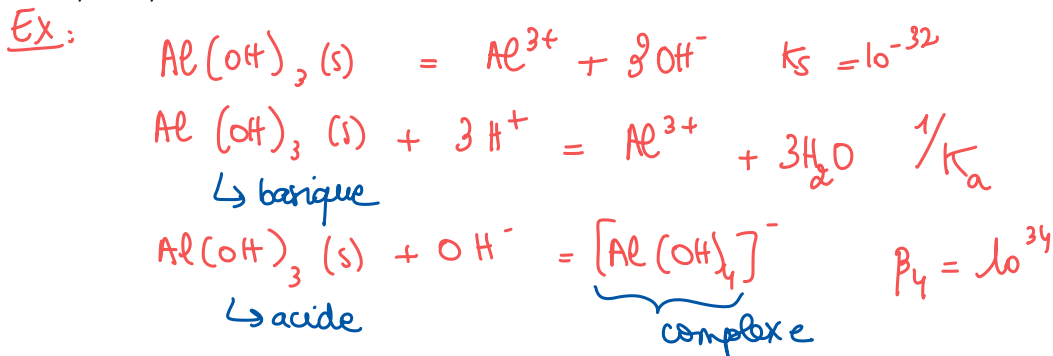 Ex :
Al(OH)₃ (s) = Al³⁺ + 3OH⁻ Ks = 10⁻³²
Al(OH)₃ (s) + 3H⁺ = Al³⁺ + 3H₂O 1/Ka
↳ basique
Al(OH)₃ (s) + OH⁻ = [Al(OH)₄]⁻ β₄ = 10³⁴
↳ acide complexe